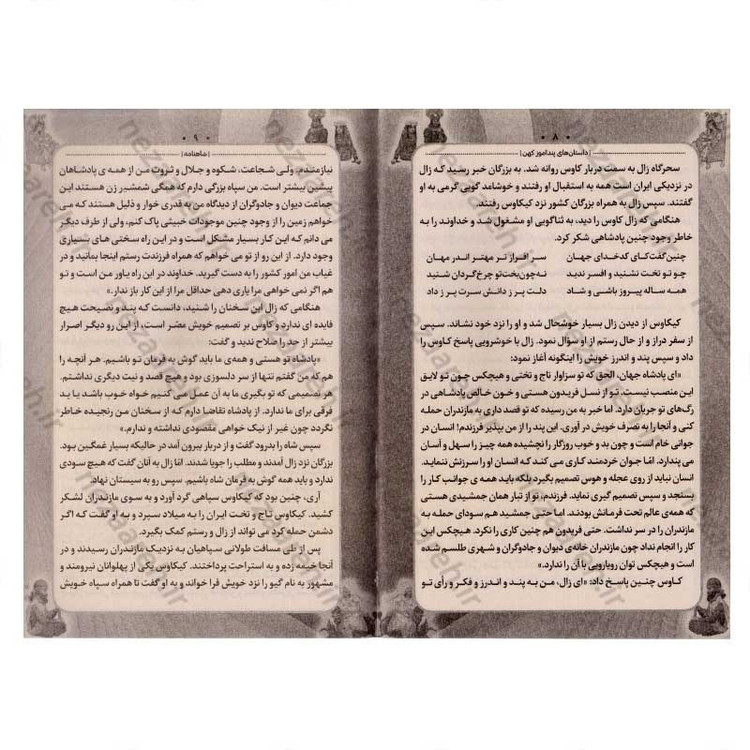 ۰۸۰
|داستان‌های پندآموز کهن|
سحرگاه زال به سمت دربار کاوس روانه شد. به بزرگان خبر رسید که زال
در نزدیکی ایران است همه به استقبال او رفتند و خوشامد گویی گرمی به او
گفتند. سپس زال به همراه بزرگان کشور نزد کیکاوس رفتند.
هنگامی که زال کاوس را دید، به ثناگویی او مشغول شد و خداوند را به
خاطر وجود چنین پادشاهی شکر کرد.
چنین گفت کای کدخدای جهان سرافراز تر مهتر اندر مهان
چو تو تخت نشنید و افسر ندید نه چون بخت تو چرخ گردان شنید
همه ساله پیروز باشی و شاد دلت پر ز دانش سرت پر ز داد
کیکاوس از دیدن زال بسیار خوشحال شد و او را نزد خود نشاند. سپس
از سفر دراز و از حال رستم از او سؤال نمود. زال با خوشرویی پاسخ کاوس را
داد و سپس پند و اندرز خویش را اینگونه آغاز نمود:
«ای پادشاه جهان، الحق که تو سزاوار تاج و تختی و هیچکس چون تو لایق
این منصب نیست. تو از نسل فریدون هستی و خون خالص پادشاهی در
رگ‌های تو جریان دارد. اما خبر به من رسیده که تو قصد داری به مازندران حمله
کنی و آنجا را به تصرف خویش در آوری. این پند را از من بپذیر فرزندم! انسان در
جوانی خام است و چون بد و خوب روزگار را نچشیده همه چیز را سهل و آسان
می پندارد. امّا جوان خردمند کاری می کند که انسان او را سرزنش ننماید.
انسان نباید از روی عجله و هوس تصمیم بگیرد بلکه باید همه ی جوانب کار را
بسنجد و سپس تصمیم گیری نماید. فرزندم، تو از تبار همان جمشیدی هستی
که همه‌ی عالم تحت فرمانش بودند. اما حتی جمشید هم سودای حمله به
مازندران را در سر نداشت. حتی فریدون هم چنین کاری را نکرد. هیچکس این
کار را انجام نداد چون مازندران خانه‌ی دیوان و جادوگران و شهری طلسم شده
است و هیچکس توان رویارویی با آن را ندارد.»
کاوس چنین پاسخ داد: «ای زال، من به پند و اندرز و فکر و رأی تو
۰۹۰
|شاهنامه|
نیازمندم. ولی شجاعت، شکوه و جلال و ثروت من از همه ی پادشاهان
پیشین بیشتر است. من سپاه بزرگی دارم که همگی شمشیر زن هستند این
جماعت دیوان و جادوگران از دیدگاه من به قدری خوار و ذلیل هستند که می
خواهم زمین را از وجود چنین موجودات خبیثی پاک کنم، ولی از طرف دیگر
می دانم که این کار بسیار مشکل است و در این راه سختی های بسیاری
وجود دارد. از این رو از تو می خواهم که همراه فرزندت رستم اینجا بمانید و در
غیاب من امور کشور را به دست گیرید. خداوند در این راه یاور من است و تو
هم اگر نمی خواهی مرا یاری دهی حداقل مرا از این کار باز ندار.»
هنگامی که زال این سخنان را شنید، دانست که پند و نصیحت هیچ
فایده ای ندارد و کاوس بر تصمیم خویش مصّر است، از این رو دیگر اصرار
بیشتر از حد را صلاح ندید و گفت:
«پادشاه تو هستی و همه‌ی ما باید گوش به فرمان تو باشیم. هر آنچه را
هم که من گفتم تنها از سر دلسوزی بود و هیچ قصد و نیت دیگری نداشتم.
هر تصمیمی که تو بگیری ما به آن عمل می کنیم خواه خوب باشد یا بد
فرقی برای ما ندارد. از پادشاه تقاضا دارم که از سخنان من رنجیده خاطر
نگردد چون غیر از نیک خواهی مقصودی نداشته و ندارم.»
سپس شاه را بدرود گفت و از دربار بیرون آمد در حالیکه بسیار غمگین بود.
بزرگان نزد زال آمدند و مطلب را جویا شدند. امّا زال به آنان گفت که هیچ سودی
ندارد و باید همه گوش به فرمان شاه باشیم. سپس رو به سیستان نهاد.
آری، چنین بود که کیکاوس سپاهی گرد آورد و به سوی مازندران لشکر
کشید. کیکاوس تاج و تخت ایران را به میلاد سپرد و به او گفت که اگر
دشمن حمله کرد می تواند از زال و رستم کمک بگیرد.
پس از طی مسافت طولانی سپاهیان به نزدیک مازندران رسیدند و در
آنجا خیمه زده و به استراحت پرداختند. کیکاوس یکی از پهلوانان نیرومند و
مشهور به نام گیو را نزد خویش فرا خواند و به او گفت تا همراه سپاه خویش
nezareh.ir